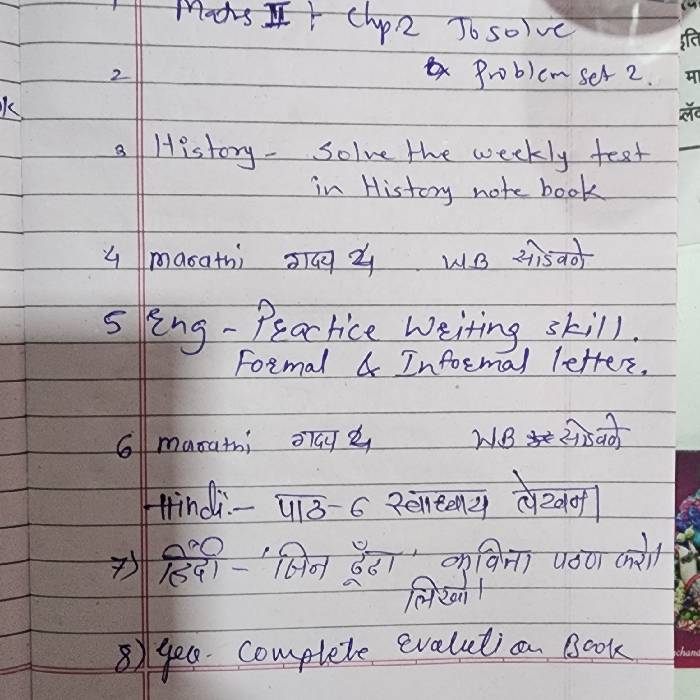 Maths II + Chp.2 To solve
2 Problem set 2.
3 History - Solve the weekly test
in History note book
4 marathi गद्य 24 WB सोडवने
5 Eng - Practice Writing skill.
Formal & Informal letter.
6 marathi गद्य 24 WB सोडवने
Hindi:- पाठ-6 स्वाध्याय लेखन।
7) हिंदी - 'जिन ढूँढा' कविता पठण करो।
लिखो।
8) Geo- Complete Evalution Book